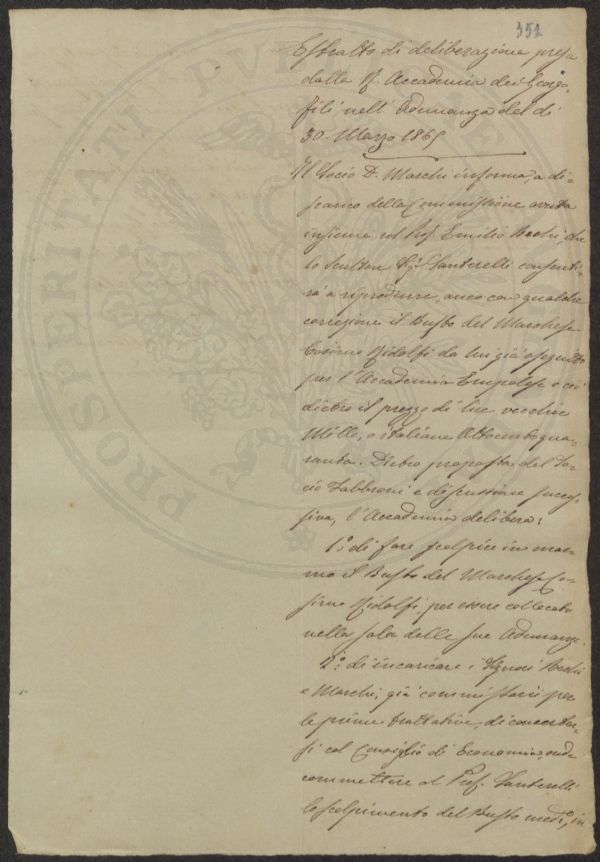 351
Estratto di deliberazione presa
dalla R. Accademia dei Georgo-
fili nell'Adunanza del dì
30. Marzo 1865
Il Socio D. Marchi informa, a di-
scarico della Commissione avuta
insieme col Prof. Emilio Bechi, che
lo Scultore Sig. Santarelli consenti-
rà a riprodurre, anco con qualche
correzione il Busto del Marchese
Cosimo Ridolfi da lui già eseguito
per l'Accademia Empolese e ciò
dietro il prezzo di lire vecchie
Mille, o italiane Ottocentoqua-
ranta. Dietro proposta del So-
cio Fabbroni e discussione succes-
siva, l'Accademia delibera:
1.° di fare scolpire in mar-
mo il Busto del Marchese Co-
simo Ridolfi, per essere collocato
nella sala delle sue Adunanze.
2.° di incaricare i Signori Bechi
e Marchi, già commissari per
le prime trattative, di concertar-
si col Consiglio di Economia, onde
commettere al Prof. Santarelli
lo scolpimento del Busto med.°, in
PROSPERITATI PUBLICAE